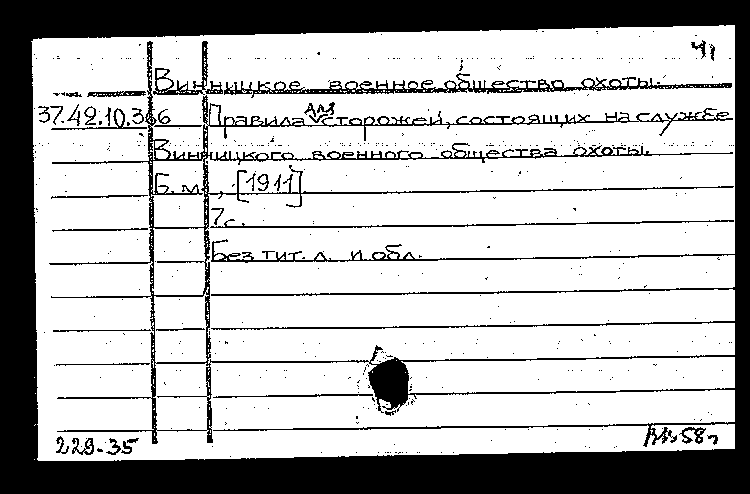 Ч1
Винницкое военное общество охоты.
37.42.10.366 Правила для сторожей, состоящих на службе
Винницкого военного общества охоты.
Б.м., [1911]
7с.
Без тит. л. и обл.
229-35 58г